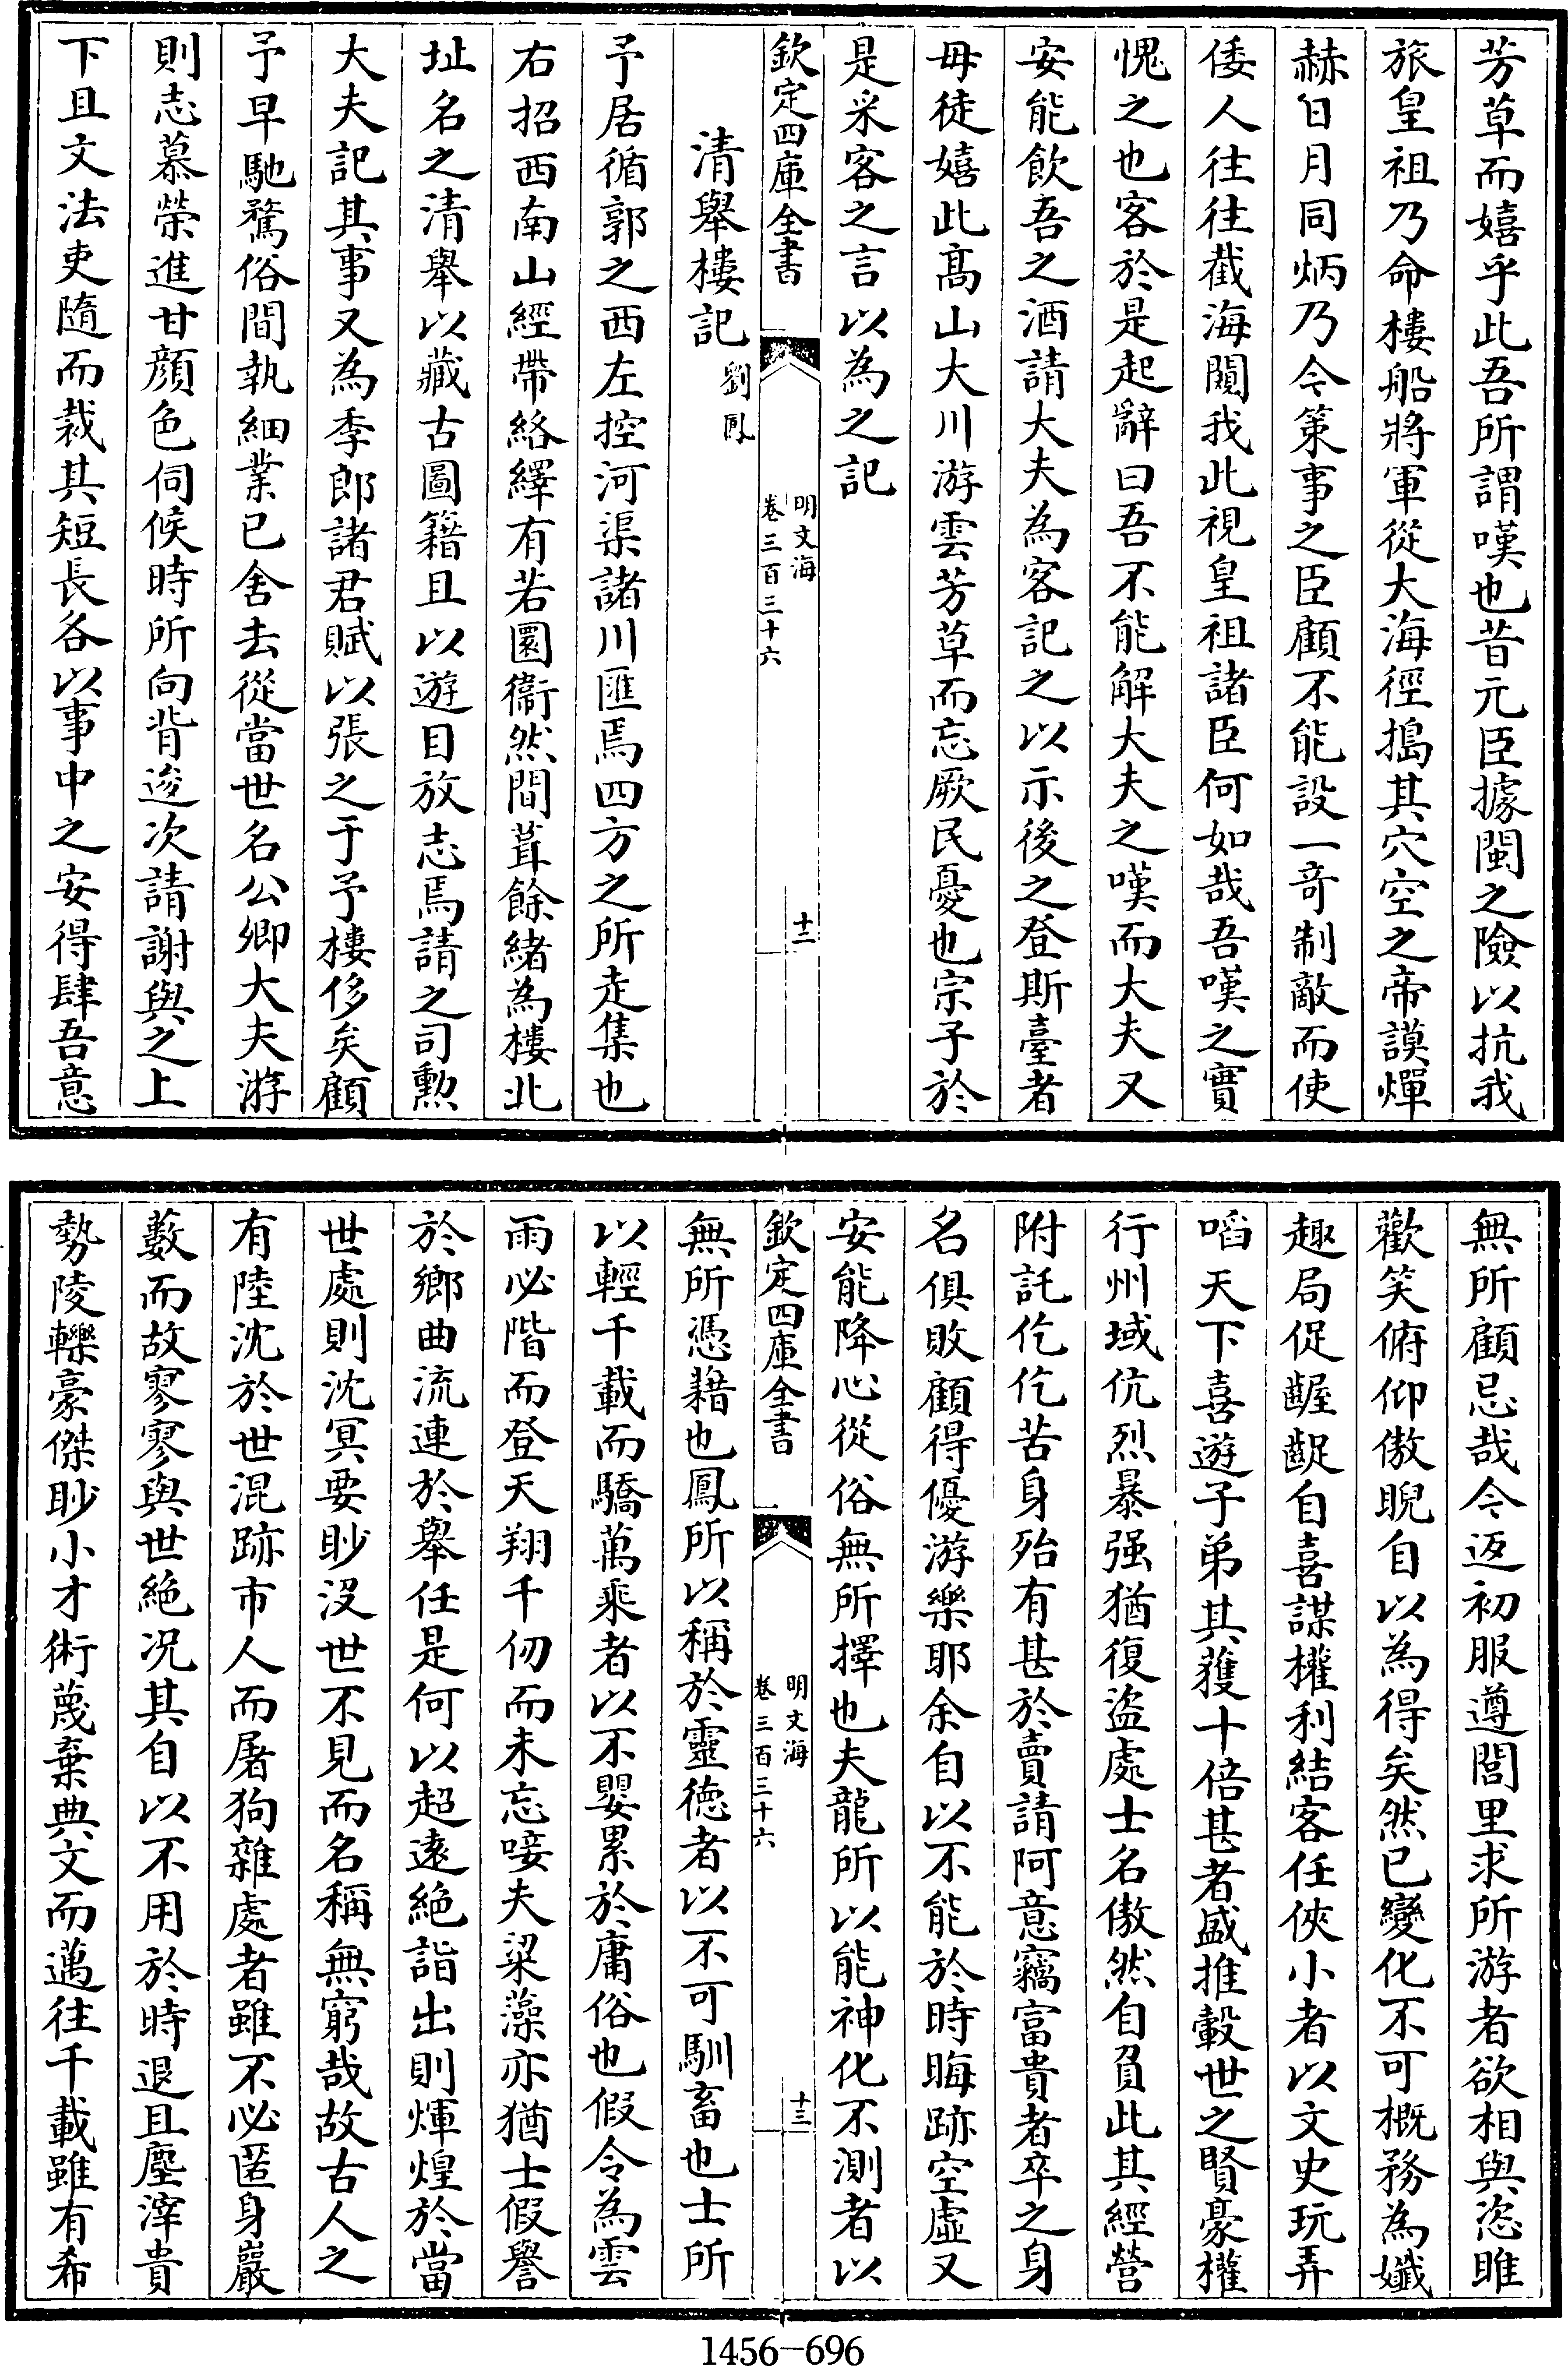 芳草而嬉乎此吾所謂嘆也昔元臣據閩之險以抗我
旅皇祖乃命樓船將軍從大海徑搗其穴空之帝謨燀
赫日月同炳乃今策事之臣顧不能設一奇制敵而使
倭人往往截海闚我此視皇祖諸臣何如哉吾嘆之實
愧之也客於是起辭曰吾不能解大夫之嘆而大夫又
安能飲吾之酒請大夫為客記之以示後之登斯臺者
毋徒嬉此髙山大川游雲芳草而忘厥民憂也宗子於
是采客之言以為之記
欽定四庫全書
明文海
卷三百三十六
十二
清舉樓記
劉鳳
予居循郭之西左控河渠諸川匯焉四方之所走集也
右招西南山經帶絡繹有若園衞然間葺餘緒為樓北
址名之清舉以藏古圖籍且以遊目放志焉請之司勲
大夫記其事又為季郎諸君賦以張之于予樓侈矣顧
予早馳騖俗間執細業已舍去從當世名公卿大夫游
則志慕榮進甘顔色伺候時所向背逡次請謝與之上
下且文法吏隨而裁其短長各以事中之安得肆吾意
無所顧忌哉今返初服遵閭里求所游者欲相與恣睢
歡笑俯仰傲睨自以為得矣然已變化不可概務為孅
趣局促齷齪自喜謀權利結客任俠小者以文史玩弄
㗖天下喜遊子弟其獲十倍甚者盛推轂世之賢豪權
行州域伉烈暴强猶復盜處士名傲然自負此其經營
附託仡仡苦身殆有甚於賣請阿意竊富貴者卒之身
名俱敗顧得優游樂耶余自以不能於時晦跡空虛又
安能降心從俗無所擇也夫龍所以能神化不測者以
欽定四庫全書
明文海
卷三百三十六
十三
無所憑藉也鳳所以稱於靈德者以不可馴畜也士所
以輕千載而驕萬乘者以不嬰累於庸俗也假令為雲
雨必階而登天翔千仞而未忘唼夫粱藻亦猶士假譽
於鄉曲流連於舉任是何以超遠絶詣出則煇煌於當
世處則沈冥要眇没世不見而名稱無窮哉故古人之
有陸沈於世混跡市人而屠狗雜處者雖不必匿身巖
藪而故寥寥與世絶况其自以不用於時退且塵滓貴
勢陵轢豪傑眇小才術蔑棄典文而邁往千載雖有希
1456-696